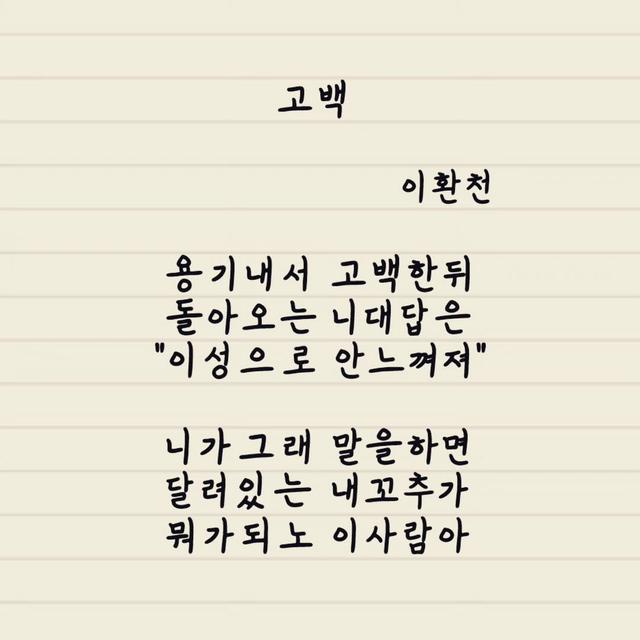 고백
이환천
용기내서 고백한뒤
돌아오는 니대답은
"이성으로 안느껴져"
니가그래 말을하면
달려있는 내꼬추가
뭐가되노 이사람아